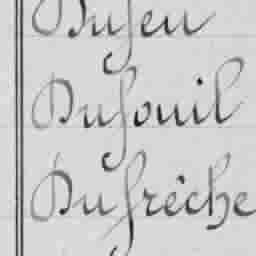 Dufeu
Dufouil
Dufrêche